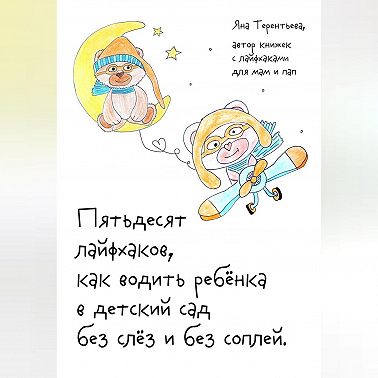 Яна Терентьева,
автор книжек
с лайфхаками
для мам и пап
Пятьдесят
лайфхаков,
как водить ребёнка
в детский сад
без слёз и без соплей.